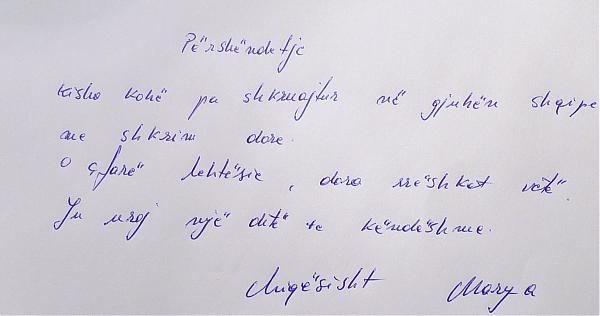 Përshëndetje
Kisha kohë pa shkruajtur në gjuhën shqipe
me shkrim dore.
O çfarë lehtësie, dora rrëshket vetë.
Ju uroj një ditë të këndëshme.
Miqësisht Marya